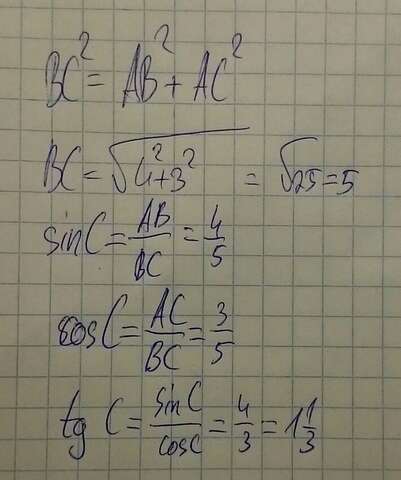 BC² = AB² + AC²
BC = √(4² + 3²) = √25 = 5
sin C = AB/BC = 4/5
cos C = AC/BC = 3/5
tg C = sin C/cos C = 4/3 = 1 1/3